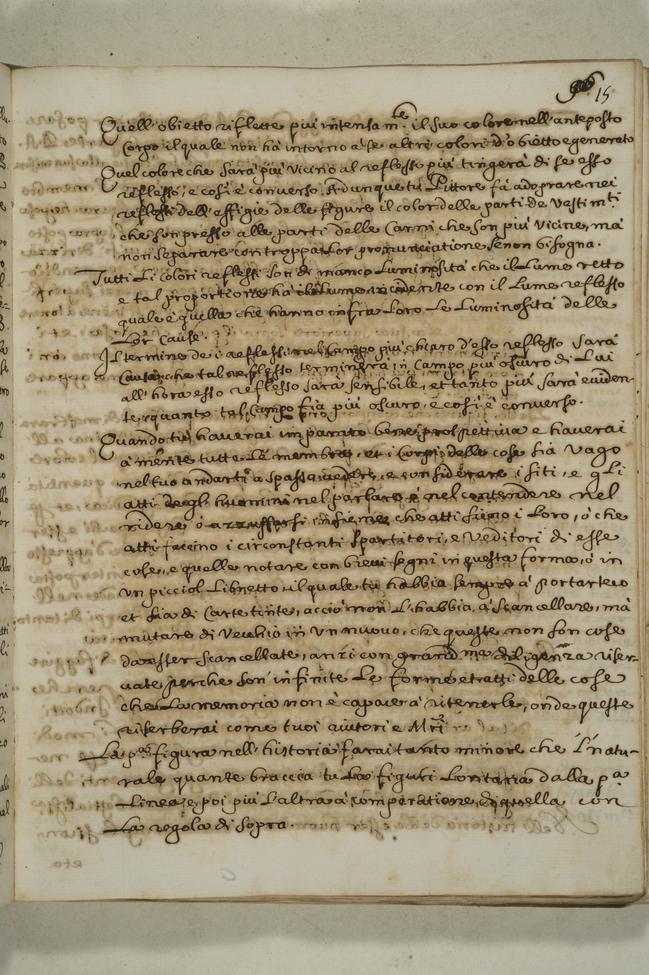 15
Quell'obietto riflette più intensam.te il suo colore nell'anteposto
Corpo il quale non hà intorno à se altri colori d'obietto e genera to
Quel colore che sarà più vicino al reflesso più tingerà di se esso
reflesso, e così è converso. Adunque tu Pittore fà adoprare nei
reflessi dell'effigie delle figure il color delle parti de Vestim.ti
che son presso alle parti delle Carni che son più vicine, mà
non separare con troppa Lor pronuntiatione se non bisogna.
Tutti Li colori reflessi son di manco Luminosità che il Lume retto
e tal proportione hà il Lume incidente con il Lume reflesso
quale è quella che hanno infra Loro le Luminosità delle
Lor Cause.
Il termine de i reflessi nel campo più chiaro d'esso reflesso sarà
causa che tal reflesso terminerà in Campo più oscuro di Lui
all'hora esso reflesso sarà sensibile, et tanto più sarà eviden-
te, quanto tal Campo fia più oscuro, e così è converso.
Quando tu haverai imparato bene prospettiva e haverai
à mente tutte Le membra, et i Corpi delle cose sia vago
nel tuo andarti à spasso vedere, e considerare i siti, e gli
atti degl'huomini nel parlare, ò nel contendere, nel
ridere, ò azzuffarsi insieme, che atti siano i Loro, ò che
atti faccino i circonstanti spartitori, e Veditori di esse
cose, e quelle notare con brevi segni in questa forma, ò in
vn picciol Libretto, il quale tu habbia sempre à portar teco
et sia di Carte tinte, acciò non L'habbia à scancellare, mà
mutare di Vecchio in vn nuovo, che queste non son cose
da esser scancellate, anzi con grand.ma diligenza riser-
vate, perche son infinite Le forme, et atti delle cose
che La memoria non è capace à ritenerle, onde queste
riserberai come tuoi aiutori e Mri
La p.a figura nell'historia farai tanto minore che il natu-
rale quante braccia tu La figuri Lontana dalla p.a
Linea, e poi più L'altra à comparatione di quella con
La regola di sopra.